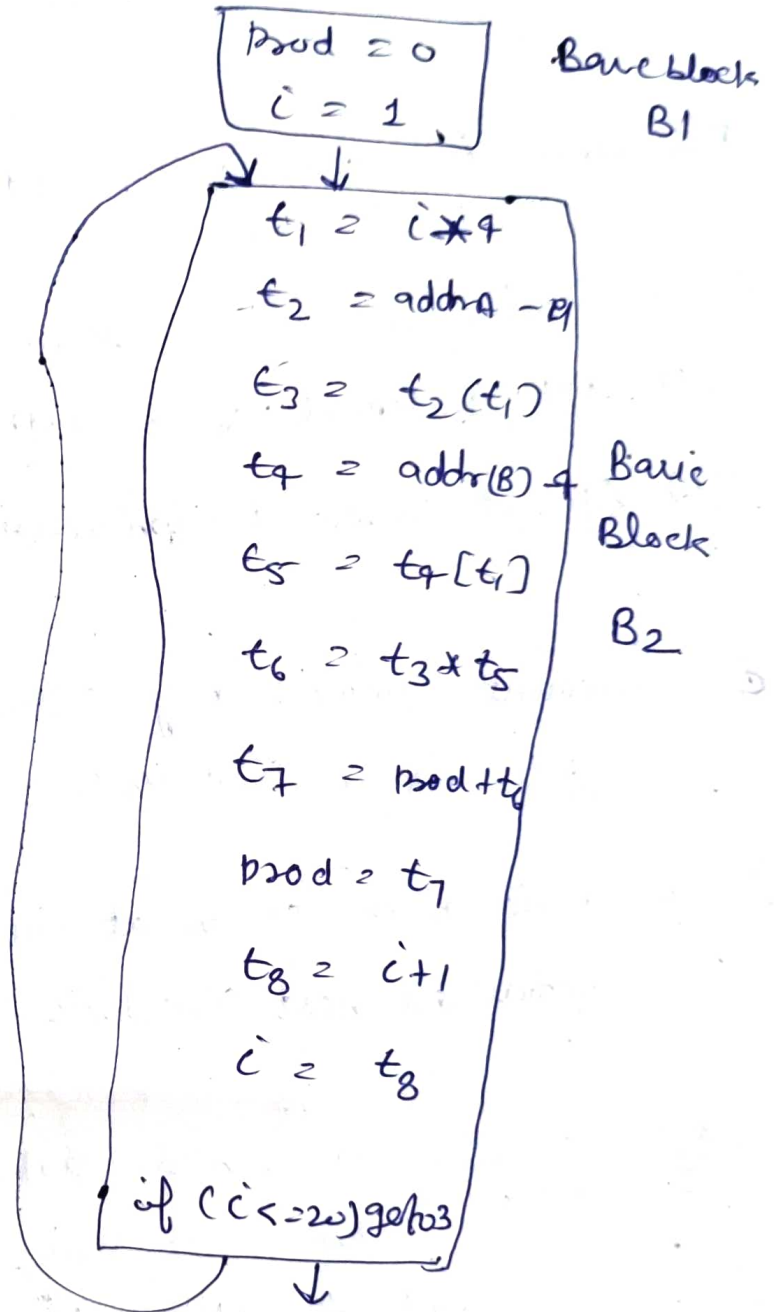 prod = 0
i = 1
Basic block
B1
t1 = i*4
t2 = addrA - 4
t3 = t2(t1)
t4 = addr(B) - 4
t5 = t4[t1]
t6 = t3 * t5
t7 = prod + t6
prod = t7
t8 = i+1
i = t8
if (i<=20) goto3
Basic
Block
B2